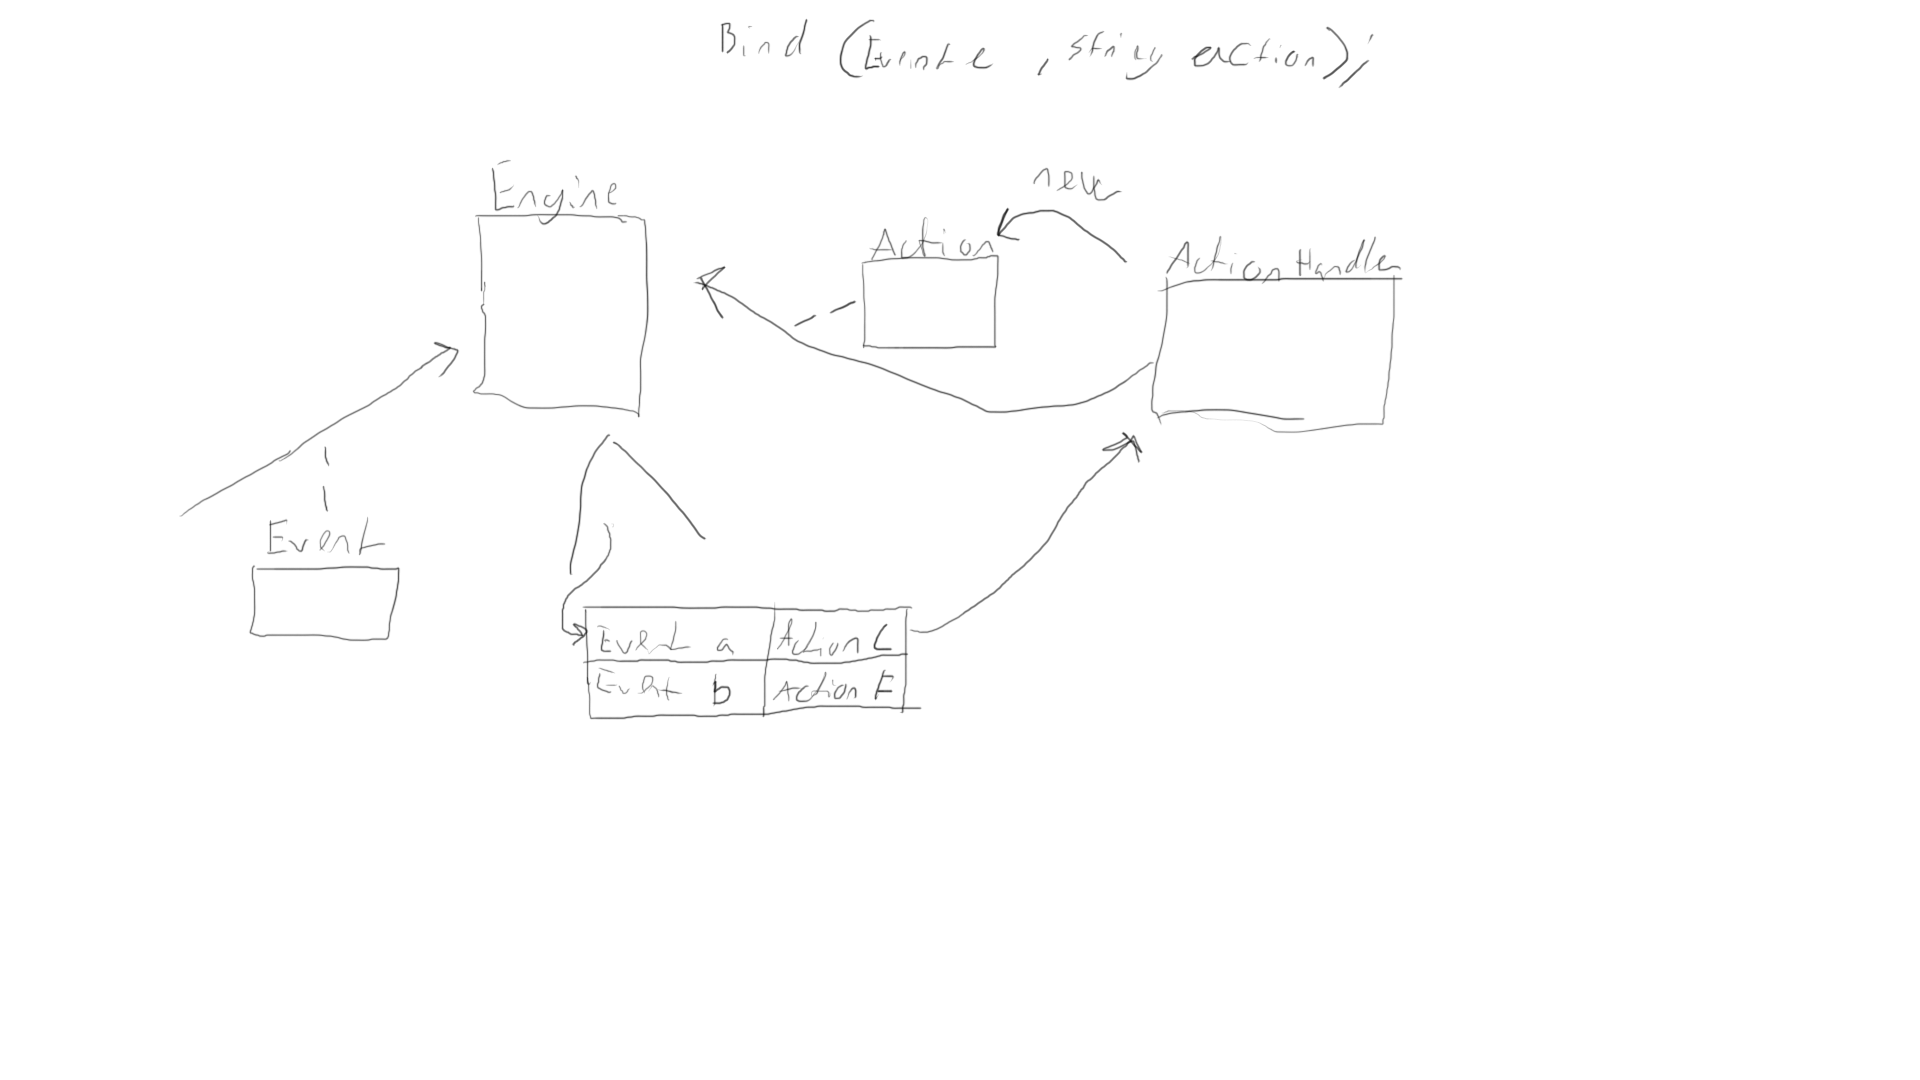 Bind (Event e , string action);
Engine
new
Action
Action Handler
Event
Event a Action C
Event b Action F